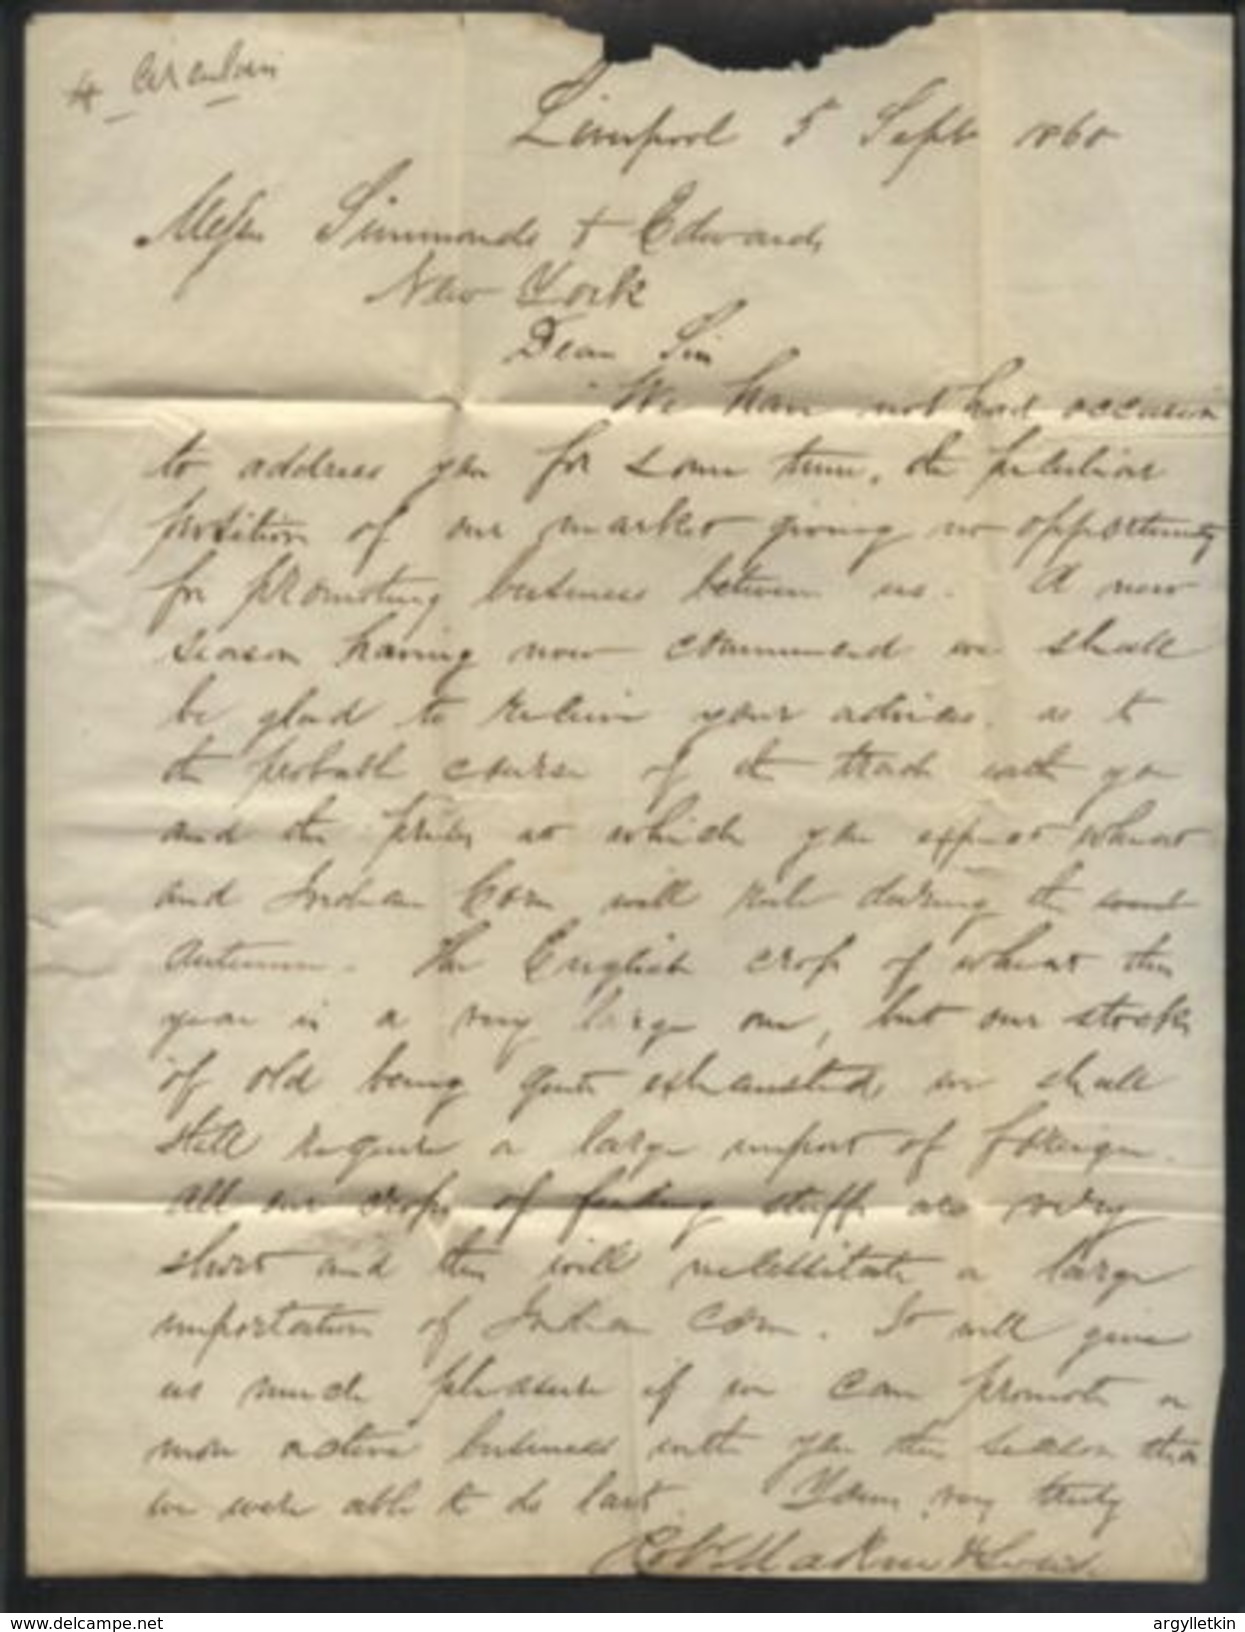 Circular
Liverpool 5 Sept 1860
Messrs Simmonds & Edwards
New York
Dear Sir
We have not had occasion
to address you for some time, the peculiar
position of our market giving no opportunity
for promoting business between us. A new
season having now commenced we shall
be glad to receive your advices as to
the probable course of the trade with you
and the prices at which you expect wheat
and Indian Corn will rule during the
autumn. The English crop of wheat this
year is a very large one, but our stocks
of old being quite exhausted we shall
still require a large import of foreign.
All our crops of feeding stuffs are very
short and this will necessitate a large
importation of Indian Corn. It will give
us much pleasure if we can promote a
more active business with you this season than
we were able to do last. Yours very truly
delcampe.net
argylletkin